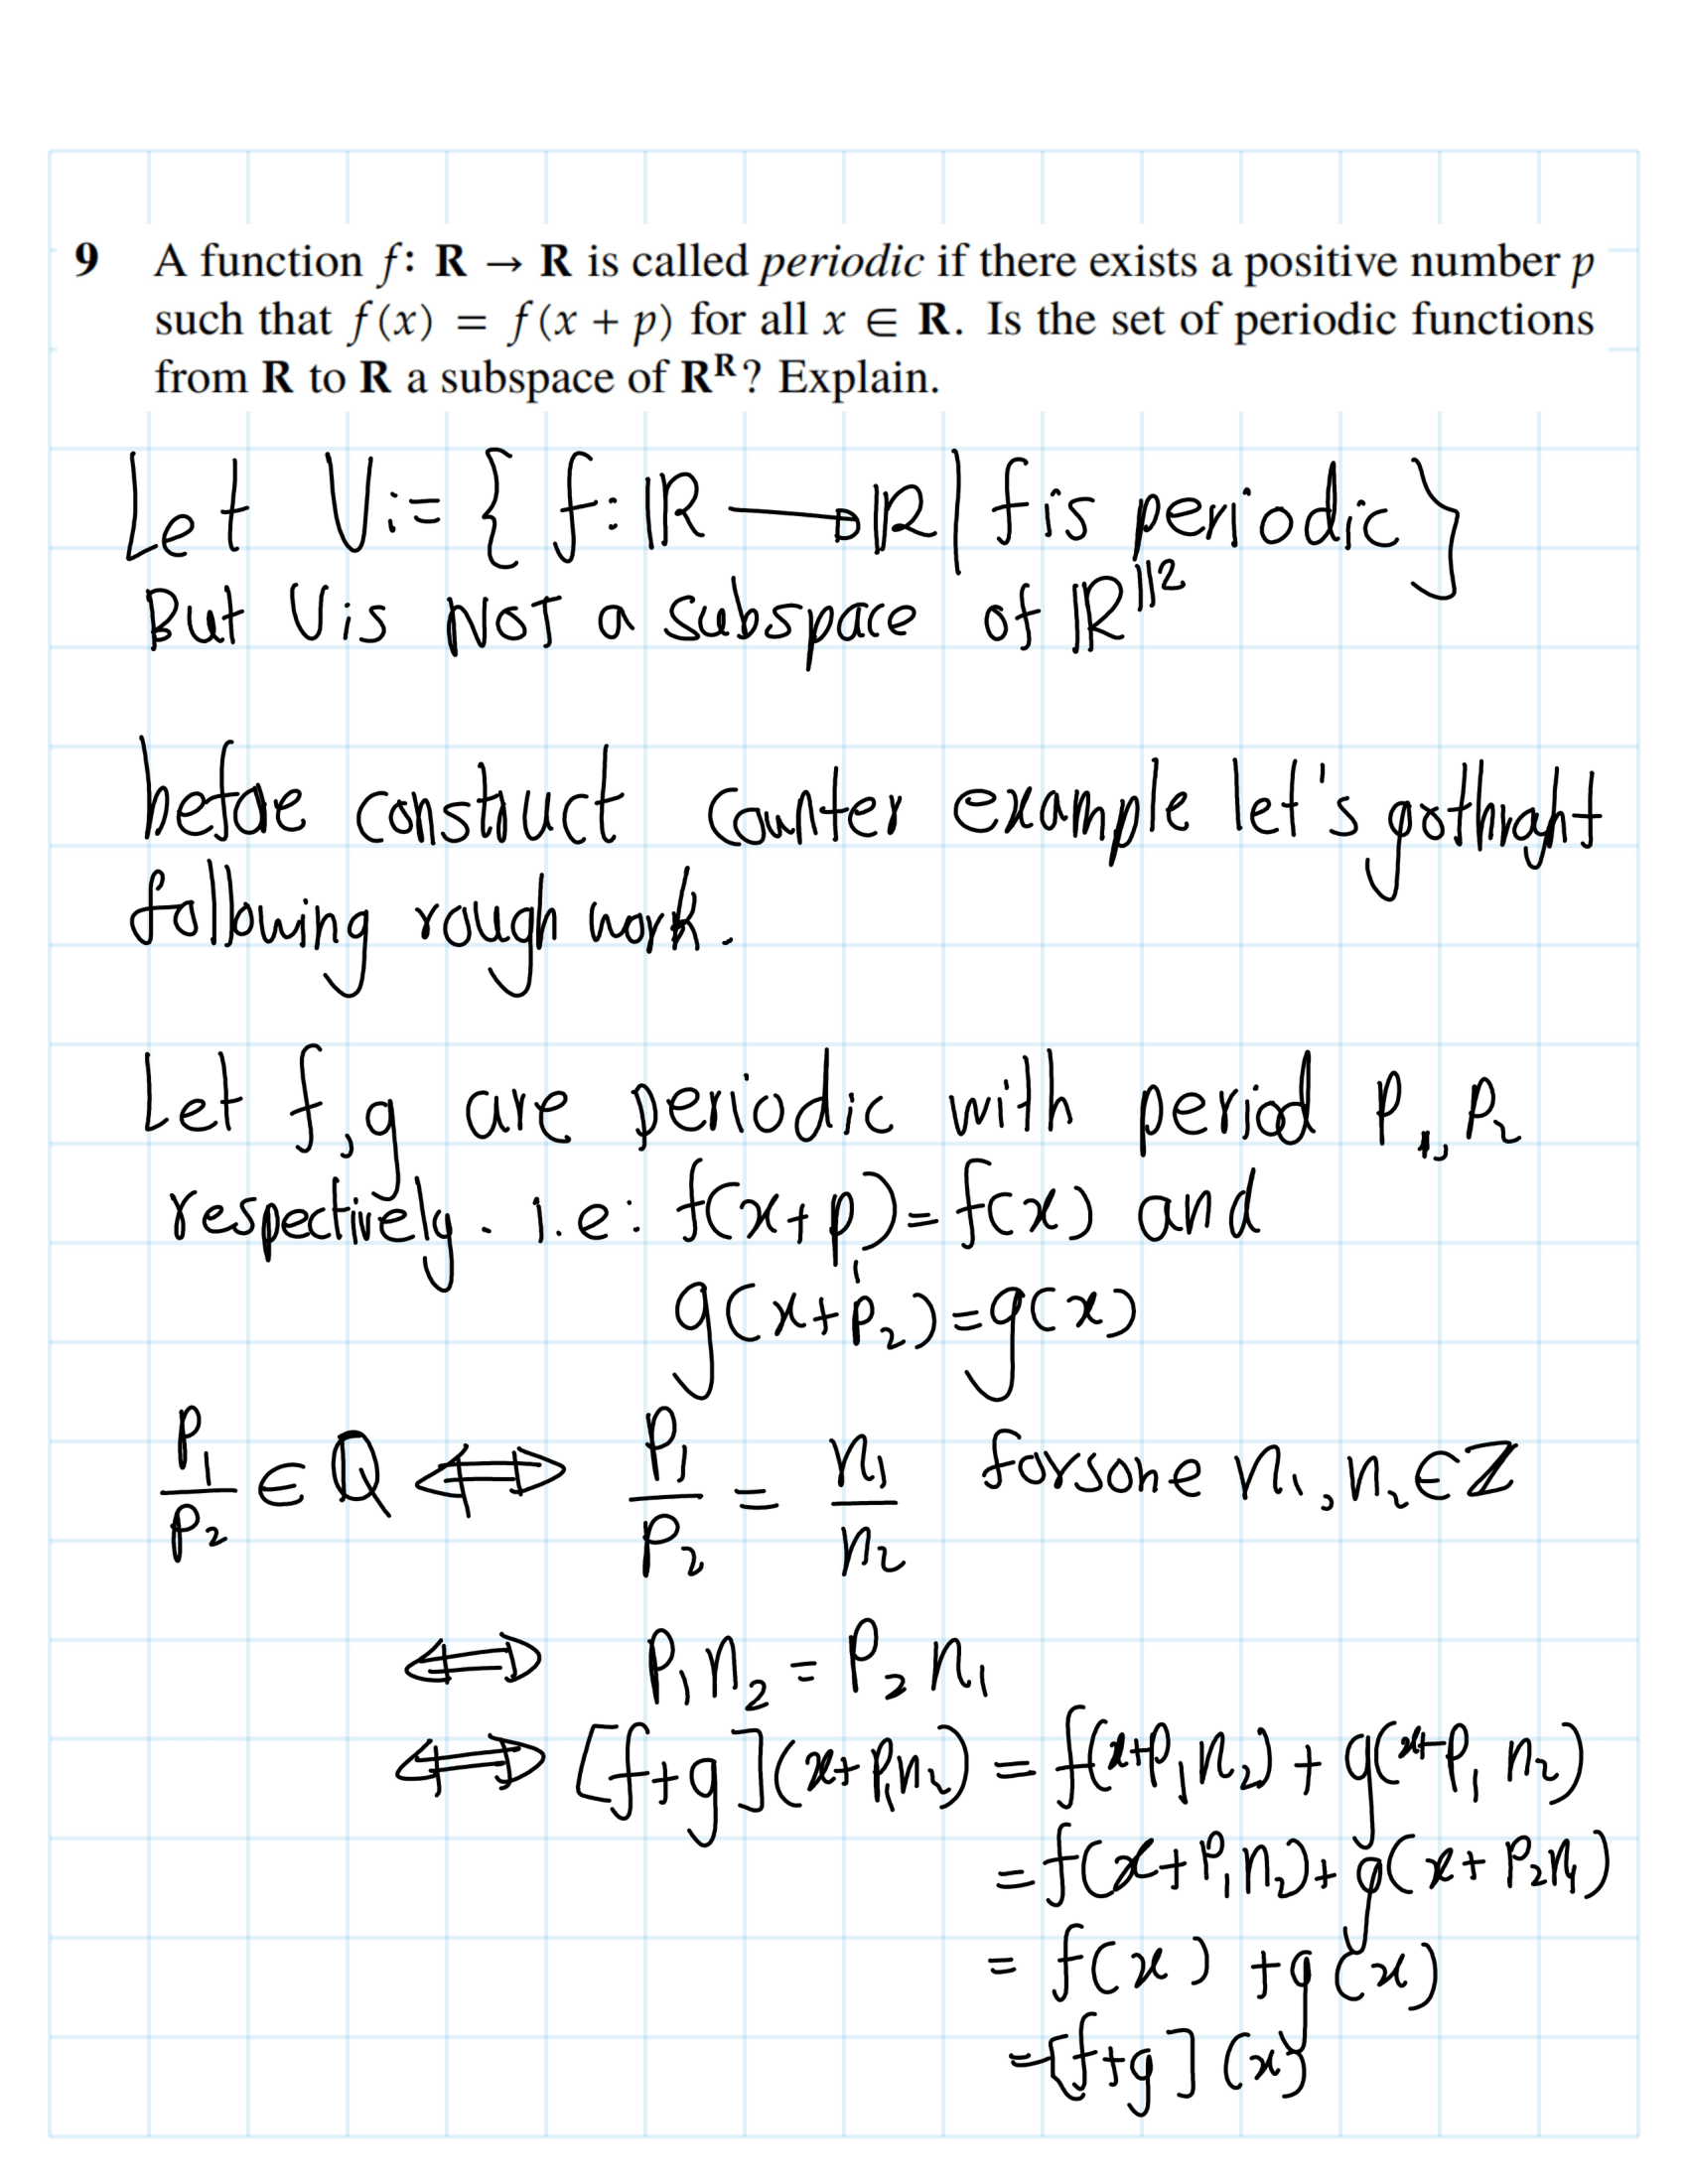 9 A function f: R → R is called periodic if there exists a positive number p
such that f(x) = f(x + p) for all x ∈ R. Is the set of periodic functions
from R to R a subspace of R^R? Explain.
Let V:= { f: ℝ → ℝ | f is periodic }
But V is NOT a subspace of ℝ^ℝ
before construct counter example let's go
following rough work.
Let f, g are periodic with period P₁, P₂
respectively. i.e: f(x+p₁)=f(x) and
g(x+p₂)=g(x)
P₁/P₂ ∈ ℚ ⟺ P₁/P₂ = n₁/n₂ for some n₁, n₂ ∈ ℤ
⟺ P₁n₂ = P₂n₁
⟺ [f+g](x+P₁n₂) = f(x+P₁n₂) + g(x+P₁n₂)
= f(x+P₁n₂)+g(x+P₂n₁)
= f(x) + g(x)
=[f+g](x)